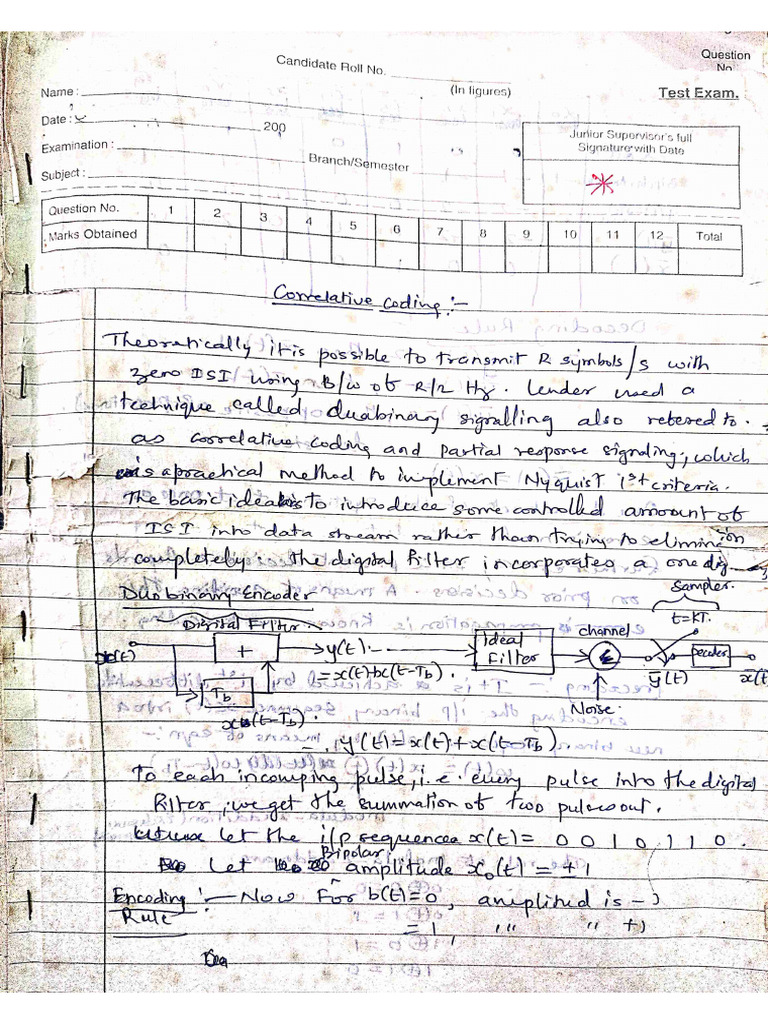 Question
No
Candidate Roll No.
(In figures)
Test Exam.
Name :
Date :
200
Examination :
Branch/Semester
Subject :
Junior Supervisor's full
Signature with Date
Question No. 1 2 3 4 5 6 7 8 9 10 11 12 Total
Marks Obtained
Correlative coding :-
Theoretically it is possible to transmit R symbols/s with
zero ISI using B/w of R/2 Hz. Lender used a
technique called duobinary signalling also refered to
as correlative coding and partial response signaling, which
is a practical method to implement Nyquist 1st criteria.
The basic idea is to introduce some controlled amount of
ISI into data stream rather than trying to elimination
completely. the digital filter incorporates a one dig
Duobinary Encoder
Sampler.
Digital Filter
t=KT.
channel
x(t)
+
y(t)
Ideal
Filter
Decoder
= x(t)+x(t-Tb).
y(t)
x(t)
Tb
x(t-Tb).
Noise.
y(t) = x(t) + x(t-Tb).
To each incomping pulse, i.e. every pulse into the digital
filter, we get the summation of two pulses out.
let the i/p sequence x(t) = 0 0 1 0 1 1 0.
Bipolar
Let amplitude x0(t) = ±1
Encoding
Rule
:- Now For b(t)=0, amplitued is -1
=1, " " +1